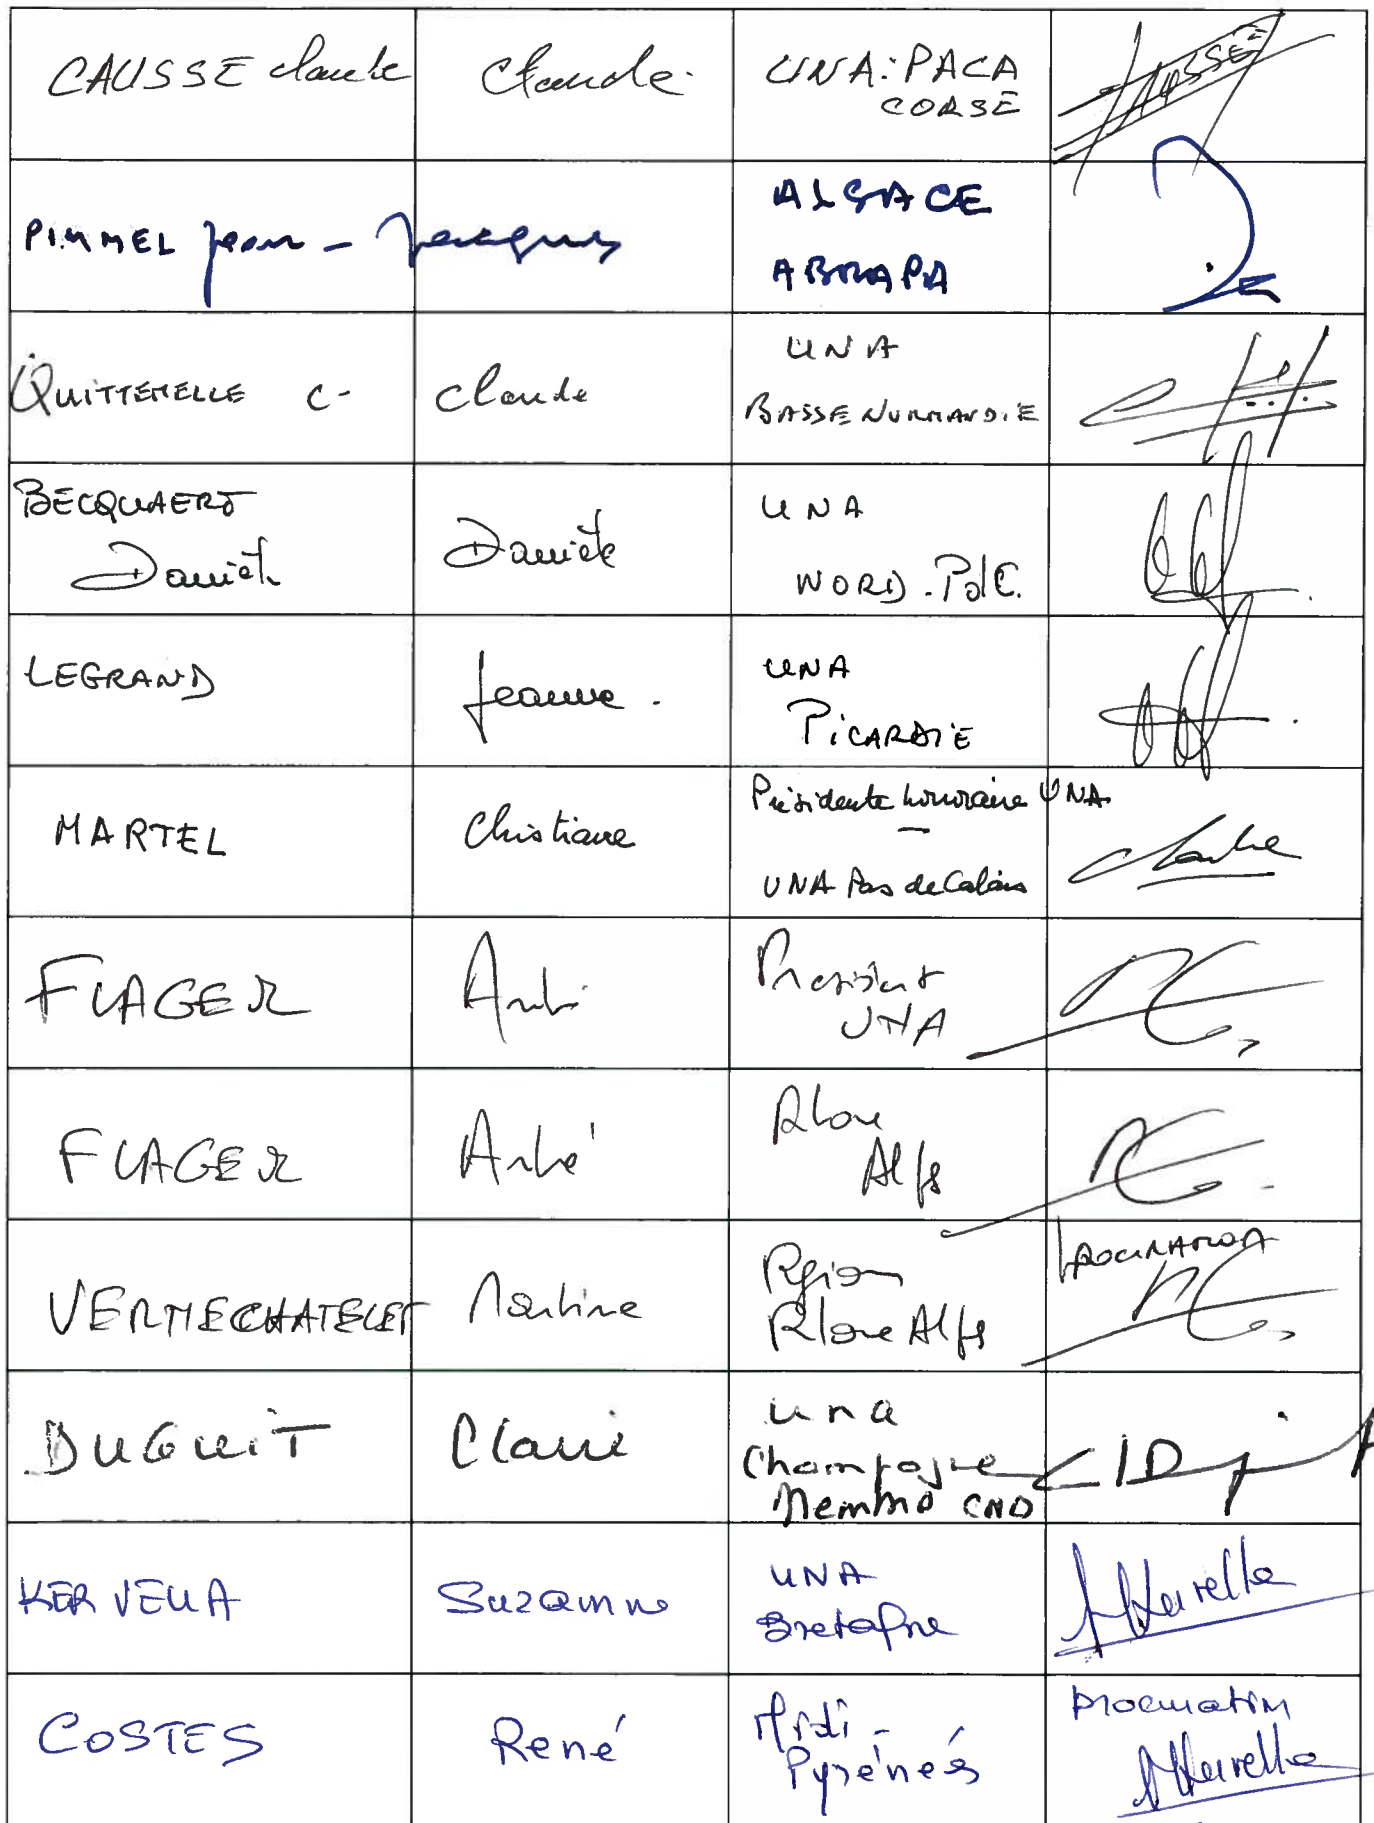 CAUSSE Claude Claude. UNA: PACA
CORSE
CAUSSE
PIMMEL Jean - Jacques ALSACE
ABRAPA
QUITTEMELLE C- Claude UNA
BASSE NORMANDIE
BECQUAERT Danièle UNA
Danièle NORD. PdC.
LEGRAND Jeanne. UNA
PICARDIE
MARTEL Christiane Présidente honoraire UNA
UNA Pas de Calais
FLAGER André President
UNA
FLAGER André Rhone
Alps
VERMECHATELET Martine Région
Rhone Alps
procuration
DUGUIT Claire una
Champagne
Membre CND
KERVELLA Suzanne UNA
Bretagne
Kervella
COSTES René Midi -
Pyrénées
procuration
Kervella